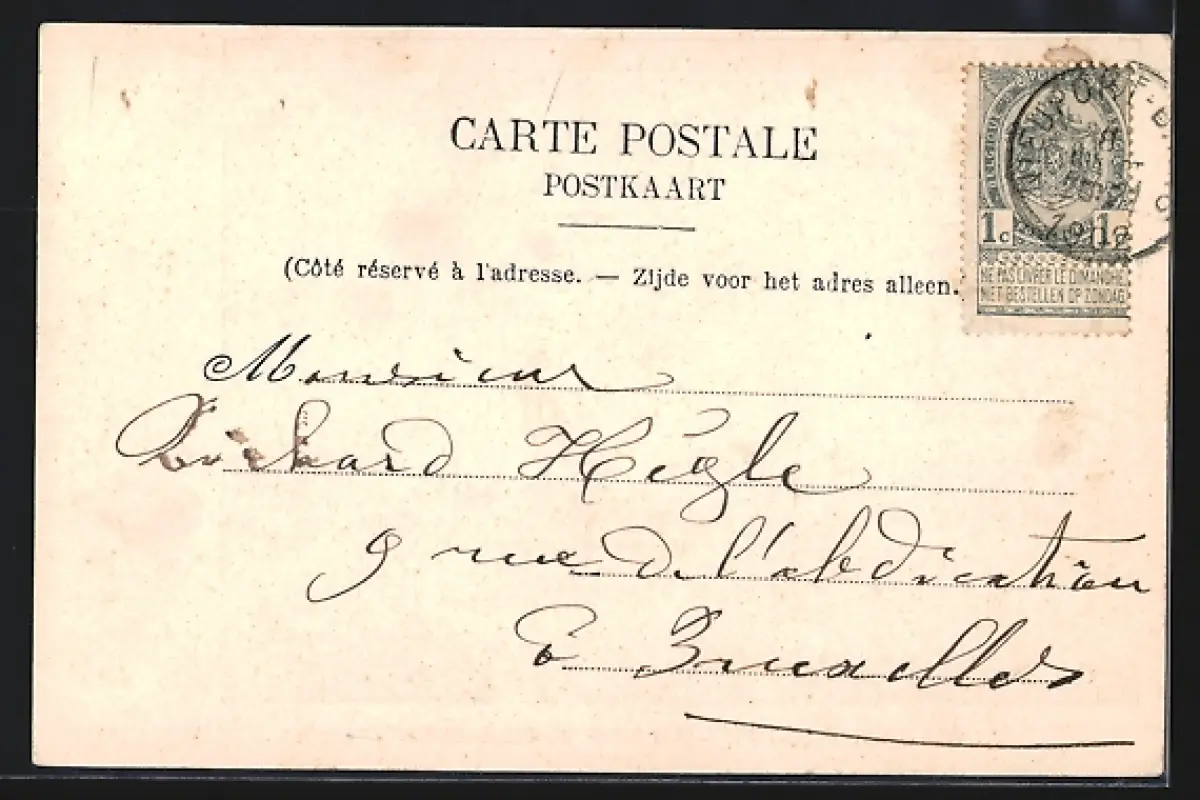 CARTE POSTALE
POSTKAART
(Côté réservé à l'adresse. — Zijde voor het adres alleen.
NIEUPORT-
1c 1c
NE PAS LIVRER LE DIMANCHE
NIET BESTELLEN OP ZONDAG
Monsieur
Richard Hégle
9 rue de l'abdication
Bruxelles